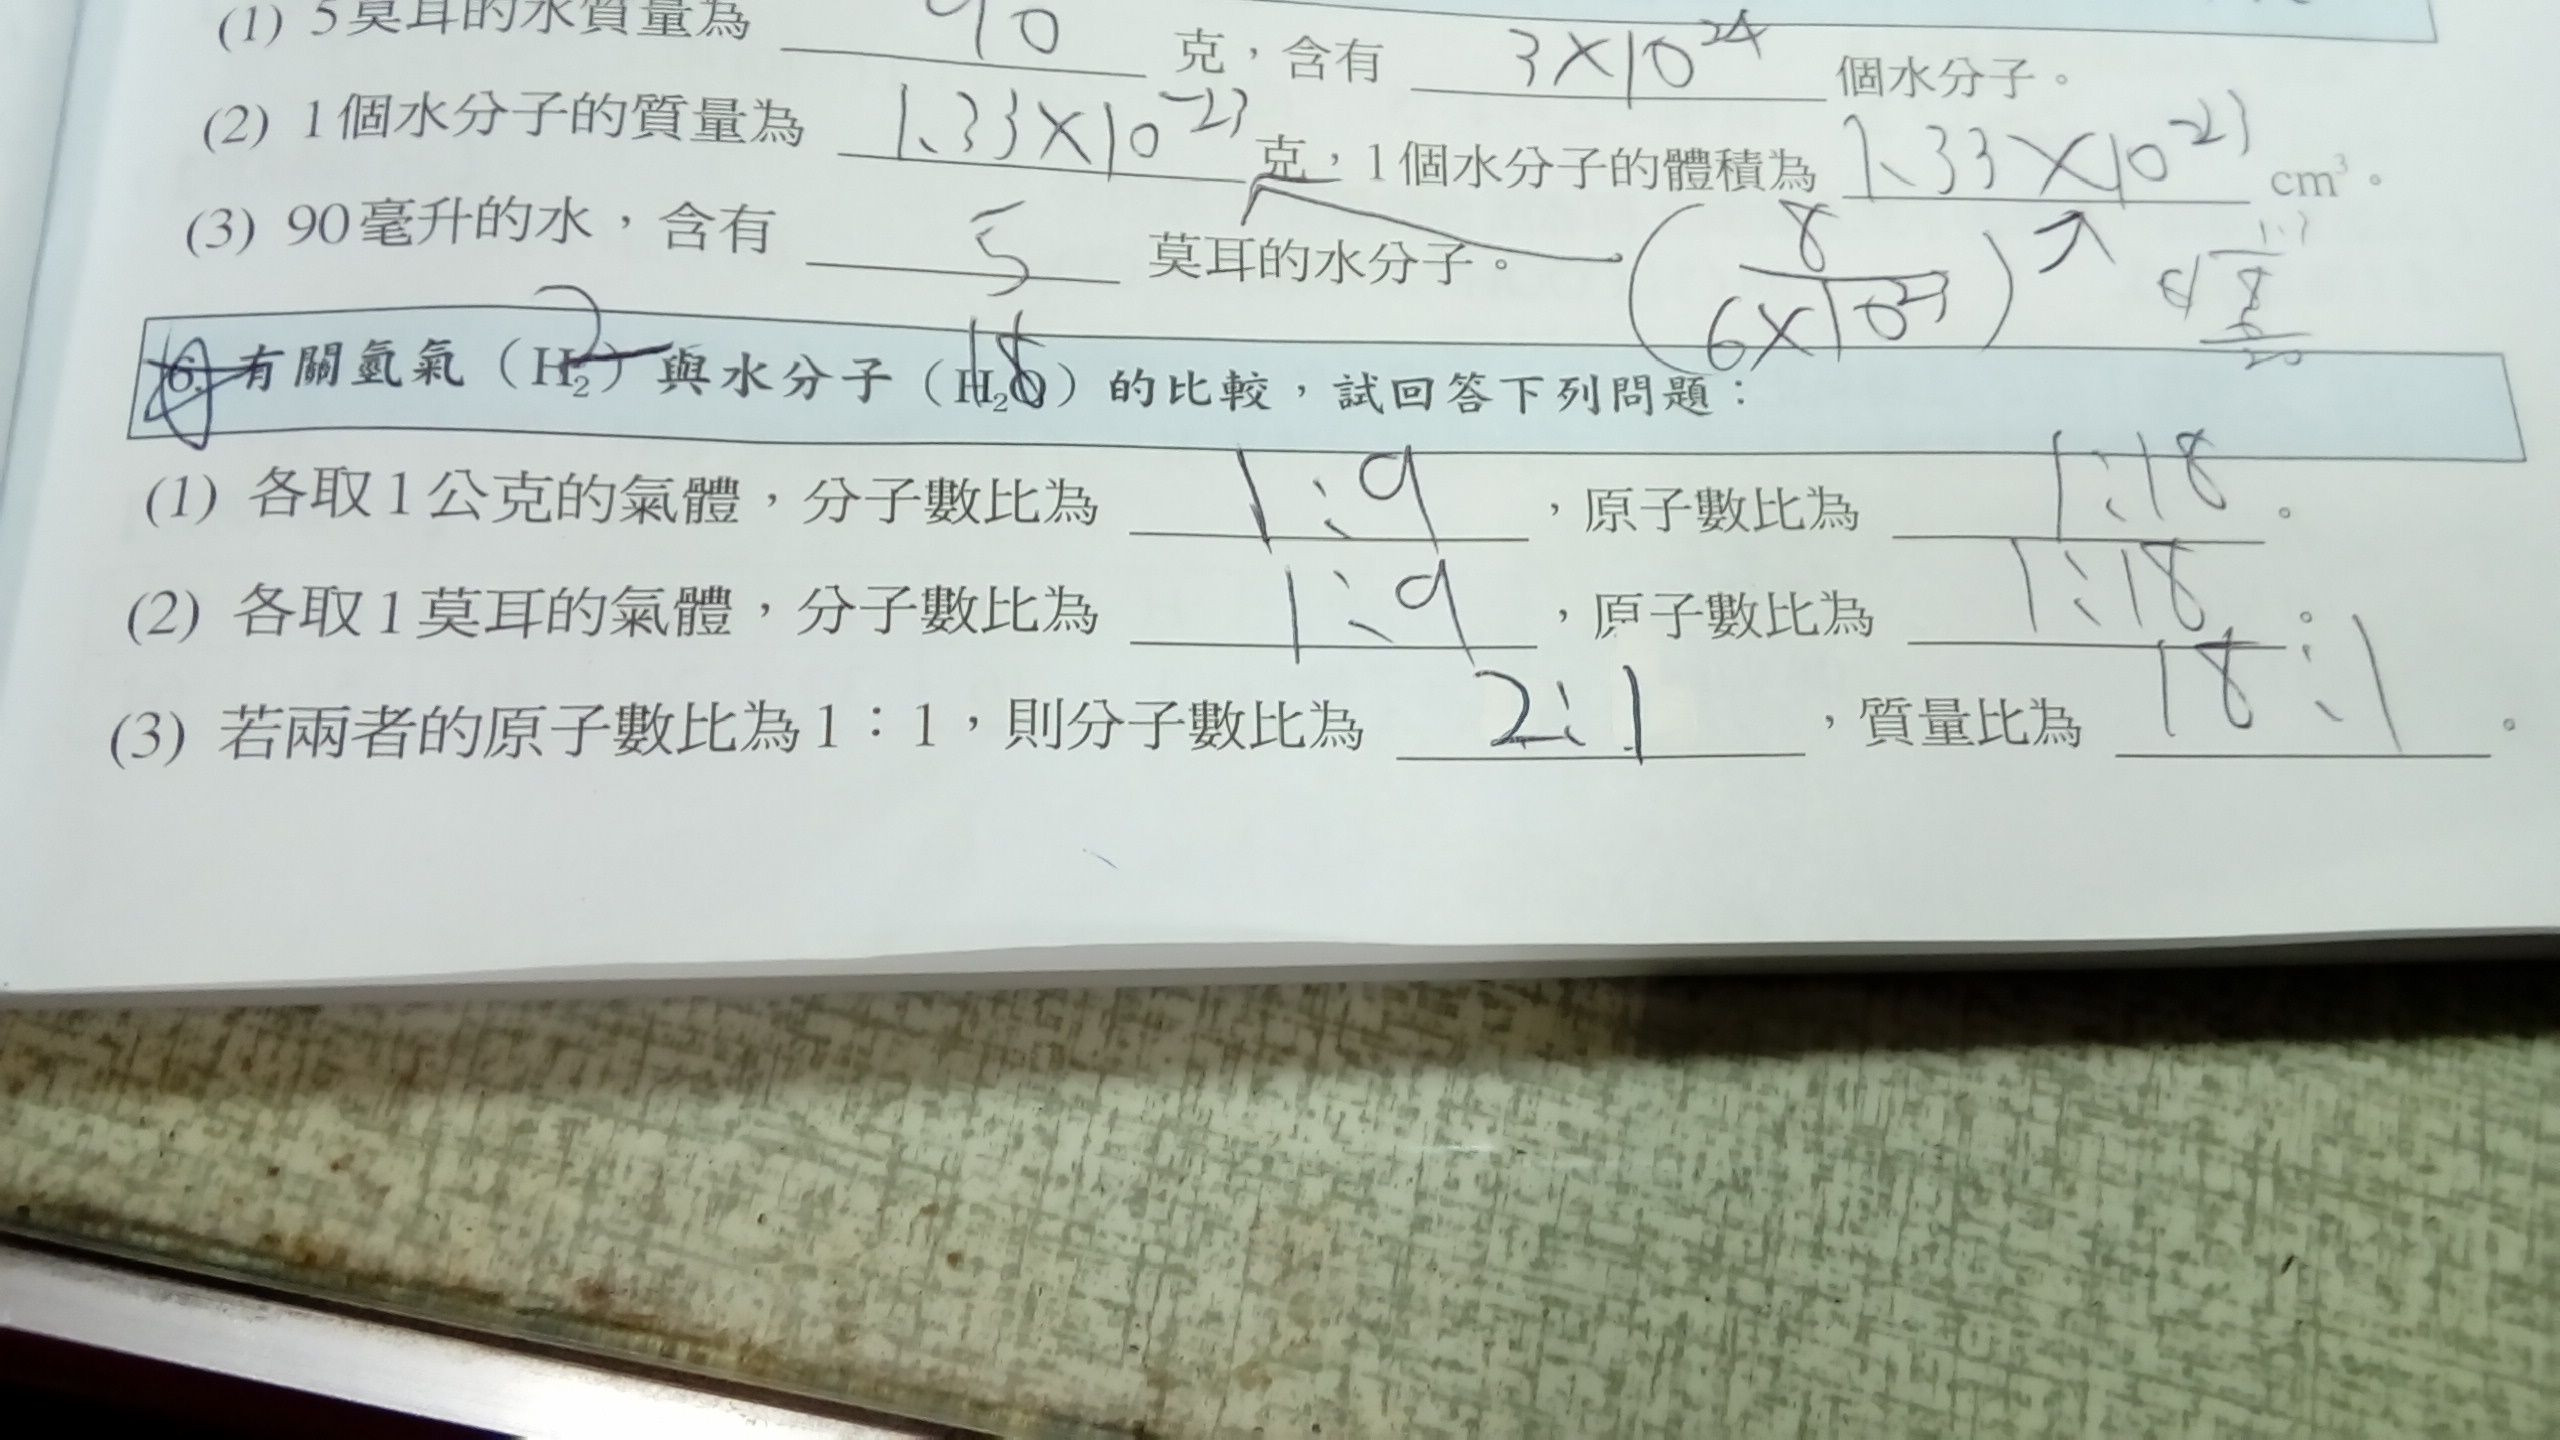 (1) 5莫耳的水質量為 90 克，含有 3×10²⁴ 個水分子。
(2) 1個水分子的質量為 1.33×10⁻²³ 克，1個水分子的體積為 1.33×10⁻²³ cm³。
(3) 90毫升的水，含有 5 莫耳的水分子。
(8/6×10²³)
2 18
6. 有關氫氣（H₂）與水分子（H₂O）的比較，試回答下列問題：
(1) 各取1公克的氣體，分子數比為 1:9，原子數比為 1:18。
(2) 各取1莫耳的氣體，分子數比為 1:9，原子數比為 1:18。
(3) 若兩者的原子數比為1：1，則分子數比為 2:1，質量比為 18:1。